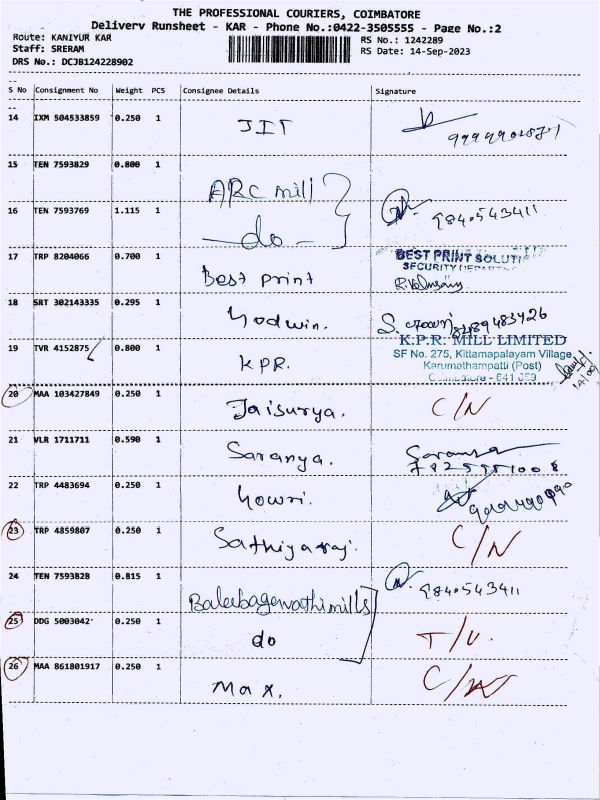 THE PROFESSIONAL COURIERS, COIMBATORE
Delivery Runsheet - KAR - Phone No.:0422-3505555 - Page No.:2
Route: KANIYUR KAR
RS No.: 1242289
Staff: SRERAM
RS Date: 14-Sep-2023
DRS No.: DCJB124228902
S No Consignment No Weight PCS Consignee Details Signature
14 IXM 504533859 0.250 1 JIT
15 TEN 7593829 0.800 1 ARC mill
16 TEN 7593769 1.115 1 - do - 9840543411
17 TRP 8204066 0.700 1 Best print
BEST PRINT SOLUTI
SECURITY DEPART
18 SRT 302143335 0.295 1 Godwin. 8489483426
19 TVR 4152875 0.800 1 KPR.
K.P.R. MILL LIMITED
SF No. 275, Kittamapalayam Village,
Karumathampatti (Post)
Coimbatore - 641 659
20 MAA 103427849 0.250 1 Jaisurya. C/N
21 VLR 1711711 0.590 1 Saranya. Saranya
22 TRP 4483694 0.250 1 Gowri.
23 TRP 4859807 0.250 1 Sathiyaraj. C/N
24 TEN 7593828 0.815 1 Balebagawathimills 9840543411
25 DDG 5003042 0.250 1 do T/U.
26 MAA 861801917 0.250 1 Max. C/N